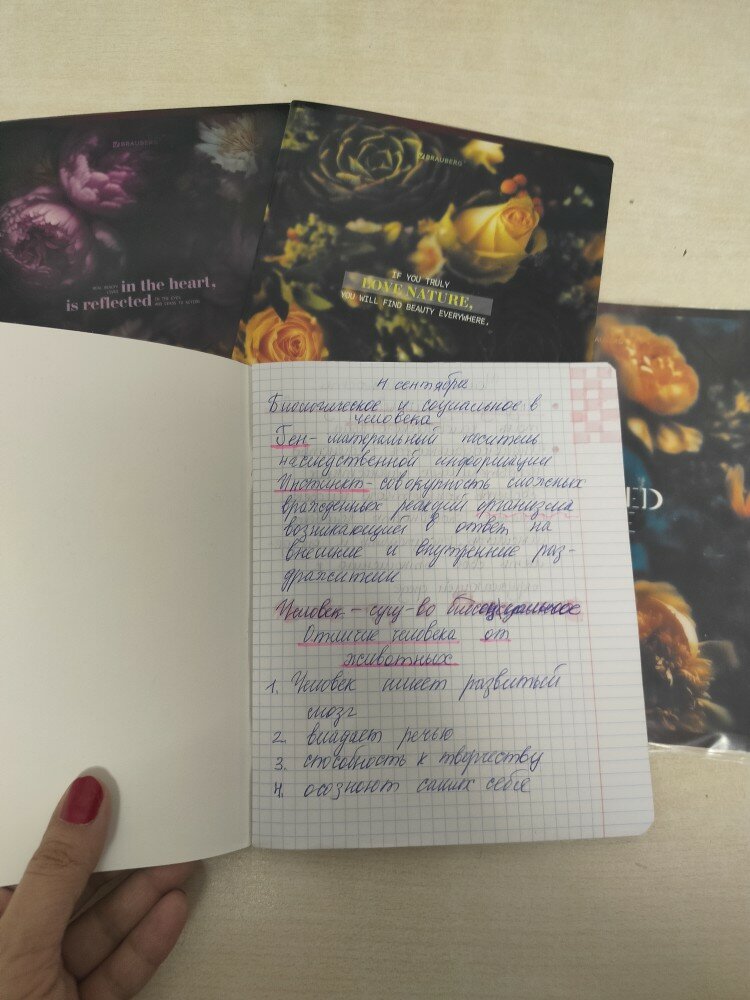 BRAUBERG
in the heart,
is reflected
BRAUBERG
IF YOU TRULY
LOVE NATURE,
YOU WILL FIND BEAUTY EVERYWHERE,
сентября
Биологическое и социальное в
человека
Ген- материальный носитель
наследственной информации
Инстинкт- совокупность сложных
врожденных реакций организма
возникающией в ответ на
внешние и внутренние раз-
дражители
Человек - сущ-во биосоциальное
Отличие человека от
животных
1. Человек имеет развитый
мозг
2. владает речью
3. способность к творчеству
4. осозноют самих себя